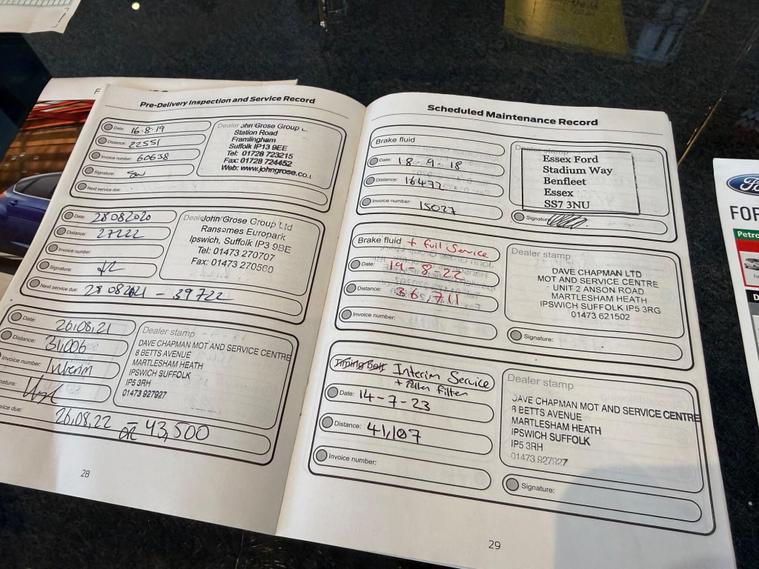 Pre-Delivery Inspection and Service Record
Date: 16.8.19
Distance: 22551
Invoice number: 60638
Signature:
Next service due:
Dealer John Grose Group L
Station Road
Framlingham
Suffolk IP13 9EE
Tel: 01728 723215
Fax: 01728 724452
Web: www.johngrose.co.u
Date: 28082020
Distance: 27222
Invoice number:
Signature:
Next service due: 28 08 2021 - 39722
John Grose Group Ltd
Ransomes Europark
Ipswich, Suffolk IP3 9BE
Tel: 01473 270707
Fax: 01473 270500
Date: 26.08.21
Distance: 31,006
Invoice number: Interim
nature:
vice due: 26.08.22 or 43,500
Dealer stamp
DAVE CHAPMAN MOT AND SERVICE CENTRE
8 BETTS AVENUE
MARTLESHAM HEATH
IPSWICH SUFFOLK
IP5 3RH
01473 927927
28
Scheduled Maintenance Record
Brake fluid
Date: 18-9-18
Distance: 16477
Invoice number: 15027
Dealer stamp
Essex Ford
Stadium Way
Benfleet
Essex
SS7 3NU
Signature:
Brake fluid + Full Service
Date: 19-8-22
Distance: 36,711
Invoice number:
Dealer stamp
DAVE CHAPMAN LTD
MOT AND SERVICE CENTRE
UNIT 2 ANSON ROAD
MARTLESHAM HEATH
IPSWICH SUFFOLK IP5 3RG
01473 621502
Signature:
Timing Belt Interim Service
+ Pollen Filter
Date: 14-7-23
Distance: 41,107
Invoice number:
Dealer stamp
DAVE CHAPMAN MOT AND SERVICE CENTRE
8 BETTS AVENUE
MARTLESHAM HEATH
IPSWICH SUFFOLK
IP5 3RH
01473 927927
Signature:
29
Ford
FOR
Petro